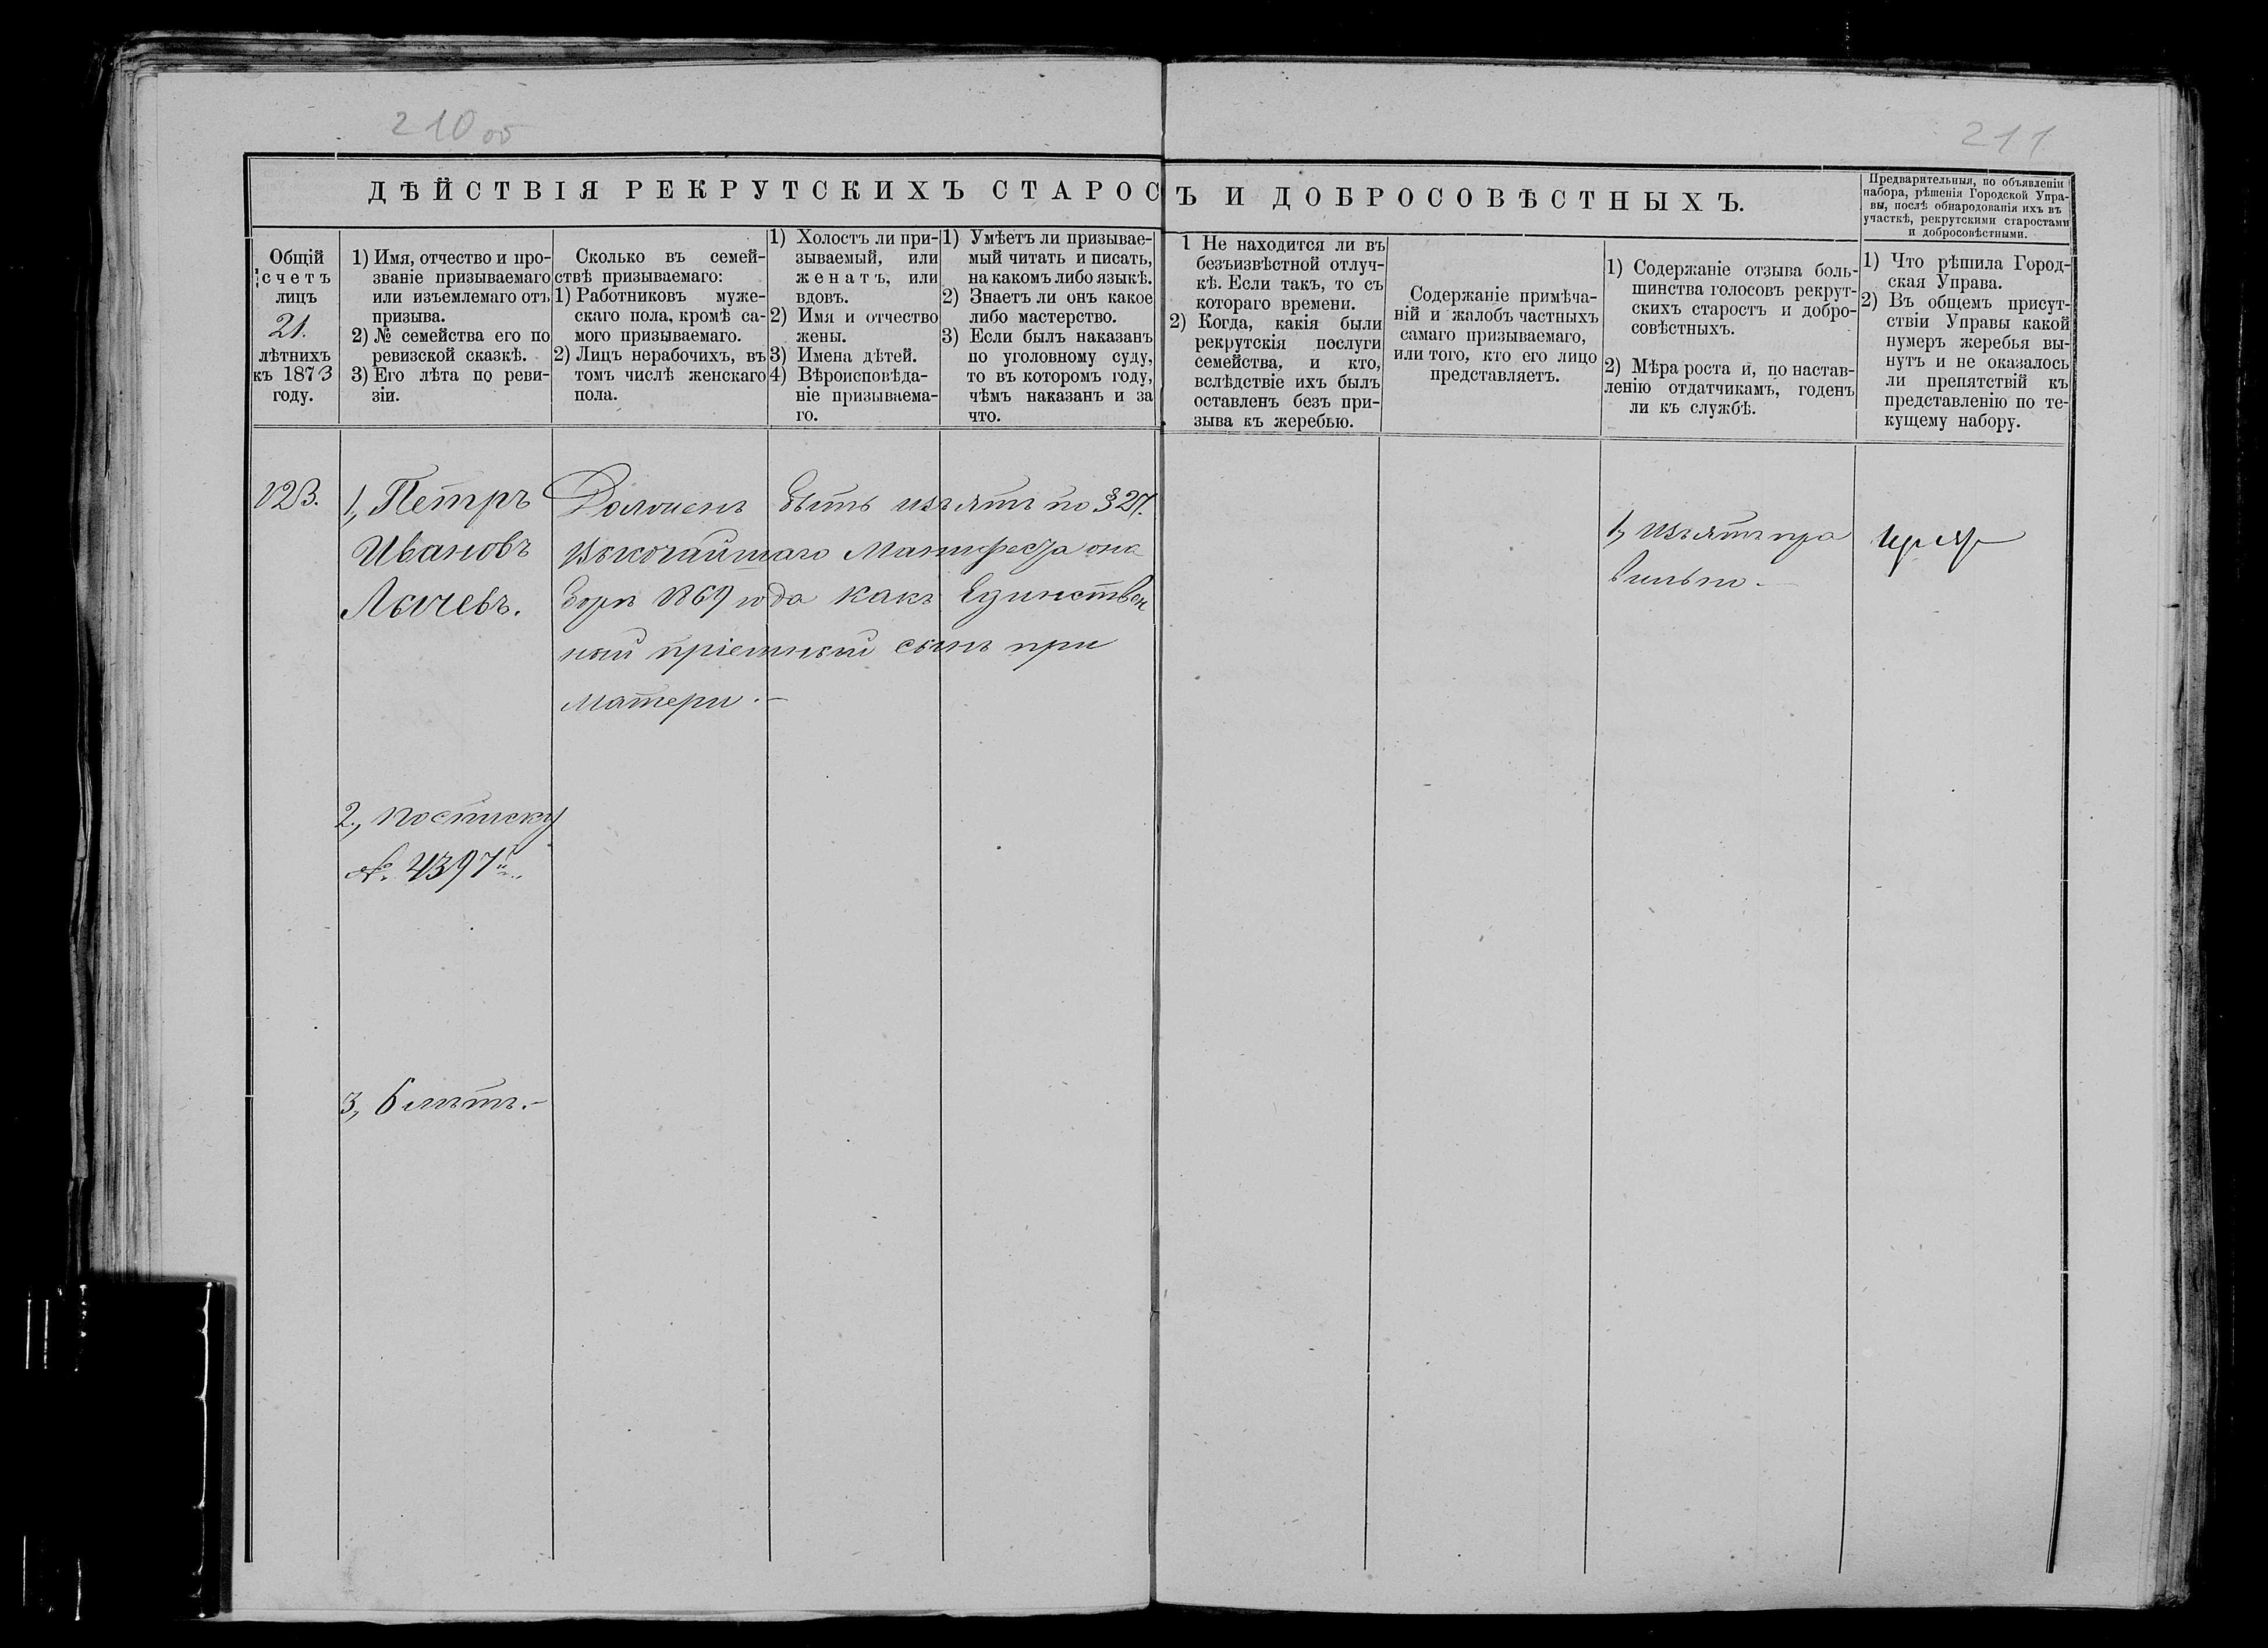 210 об
211
ДѢЙСТВІЯ РЕКРУТСКИХЪ СТАРОСТЪ И ДОБРОСОВѢСТНЫХЪ.
Предварительныя, по объявленіи
набора, рѣшенія Городской Упра-
вы, послѣ обнародованія ихъ въ
участкѣ, рекрутскими старостами
и добросовѣстными.
Общій
счетъ
лицъ
21.
лѣтнихъ
къ 1873
году.
1) Имя, отчество и про-
званіе призываемаго
или изъемлемаго отъ
призыва.
2) № семейства его по
ревизской сказкѣ.
3) Его лѣта по реви-
зіи.
Сколько въ семей-
ствѣ призываемаго:
1) Работниковъ муже-
скаго пола, кромѣ са-
мого призываемаго.
2) Лицъ нерабочихъ, въ
томъ числѣ женскаго
пола.
1) Холостъ ли при-
зываемый, или
женатъ, или
вдовъ.
2) Имя и отчество
жены.
3) Имена дѣтей.
4) Вѣроисповѣда-
ніе призываема-
го.
1) Умѣетъ ли призывае-
мый читать и писать,
на какомъ либо языкѣ.
2) Знаетъ ли онъ какое
либо мастерство.
3) Если былъ наказанъ
по уголовному суду,
то въ которомъ году,
чѣмъ наказанъ и за
что.
1 Не находится ли въ
безъизвѣстной отлуч-
кѣ. Если такъ, то съ
котораго времени.
2) Когда, какія были
рекрутскія послуги
семейства, и кто,
вслѣдствіе ихъ былъ
оставленъ безъ при-
зыва къ жеребью.
Содержаніе примѣча-
ній и жалобъ частныхъ
самаго призываемаго,
или того, кто его лицо
представляетъ.
1) Содержаніе отзыва боль-
шинства голосовъ рекрут-
скихъ старостъ и добро-
совѣстныхъ.
2) Мѣра роста и, по настав-
ленію отдатчикамъ, годенъ
ли къ службѣ.
1) Что рѣшила Город-
ская Управа.
2) Въ общемъ присут-
ствіи Управы какой
нумеръ жеребья вы-
нутъ и не оказалось
ли препятствій къ
представленію по те-
кущему набору.
123.
1, Петръ
Ивановъ
Лычевъ.
2, по списку
№ 4397й.
3, 6 лѣтъ.
Долженъ быть изъятъ по § 27.
Высочайшаго Манифеста о на
борѣ 1869 года какъ Единствен
ный пріемный сынъ при
матери.
1, Изъятъ пра
вильно.